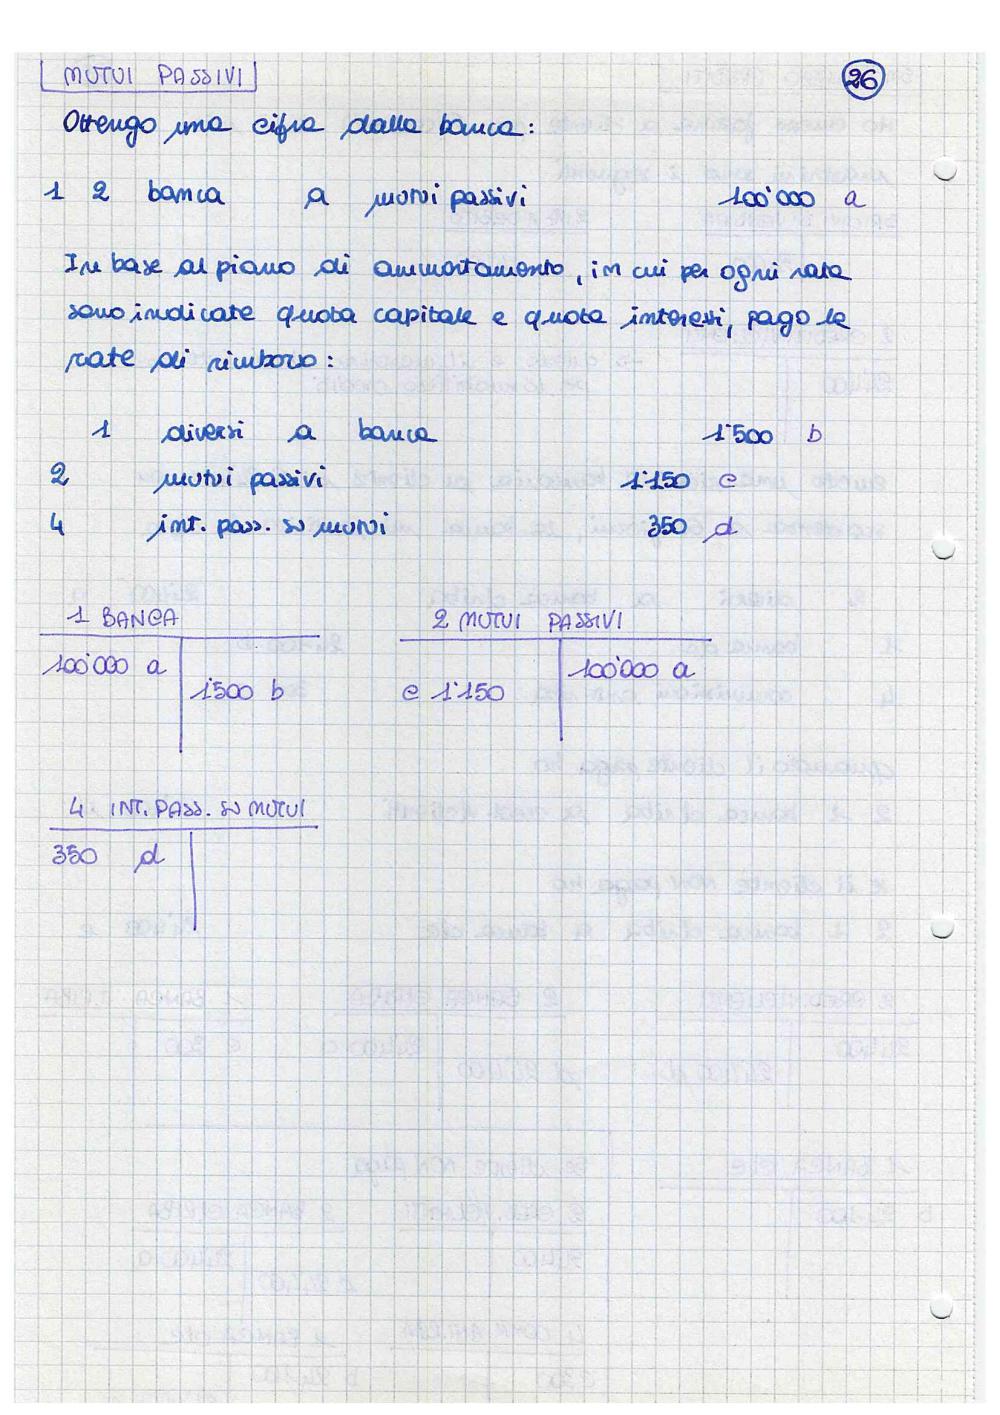 MUTUI PASSIVI
26
Ottengo una cifra dalla banca:
1 2 banca a mutui passivi 100'000 a
In base al piano di ammortamento, in cui per ogni rata
sono indicate quota capitale e quota interessi, pago le
rate di rimborso:
1 diversi a banca 1'500 b
2 mutui passivi 1'150 c
4 int. pass. su mutui 350 d
1 BANCA
100'000 a
1'500 b
2 MUTUI PASSIVI
100'000 a
c 1'150
4 INT. PASS. SU MUTUI
350 d